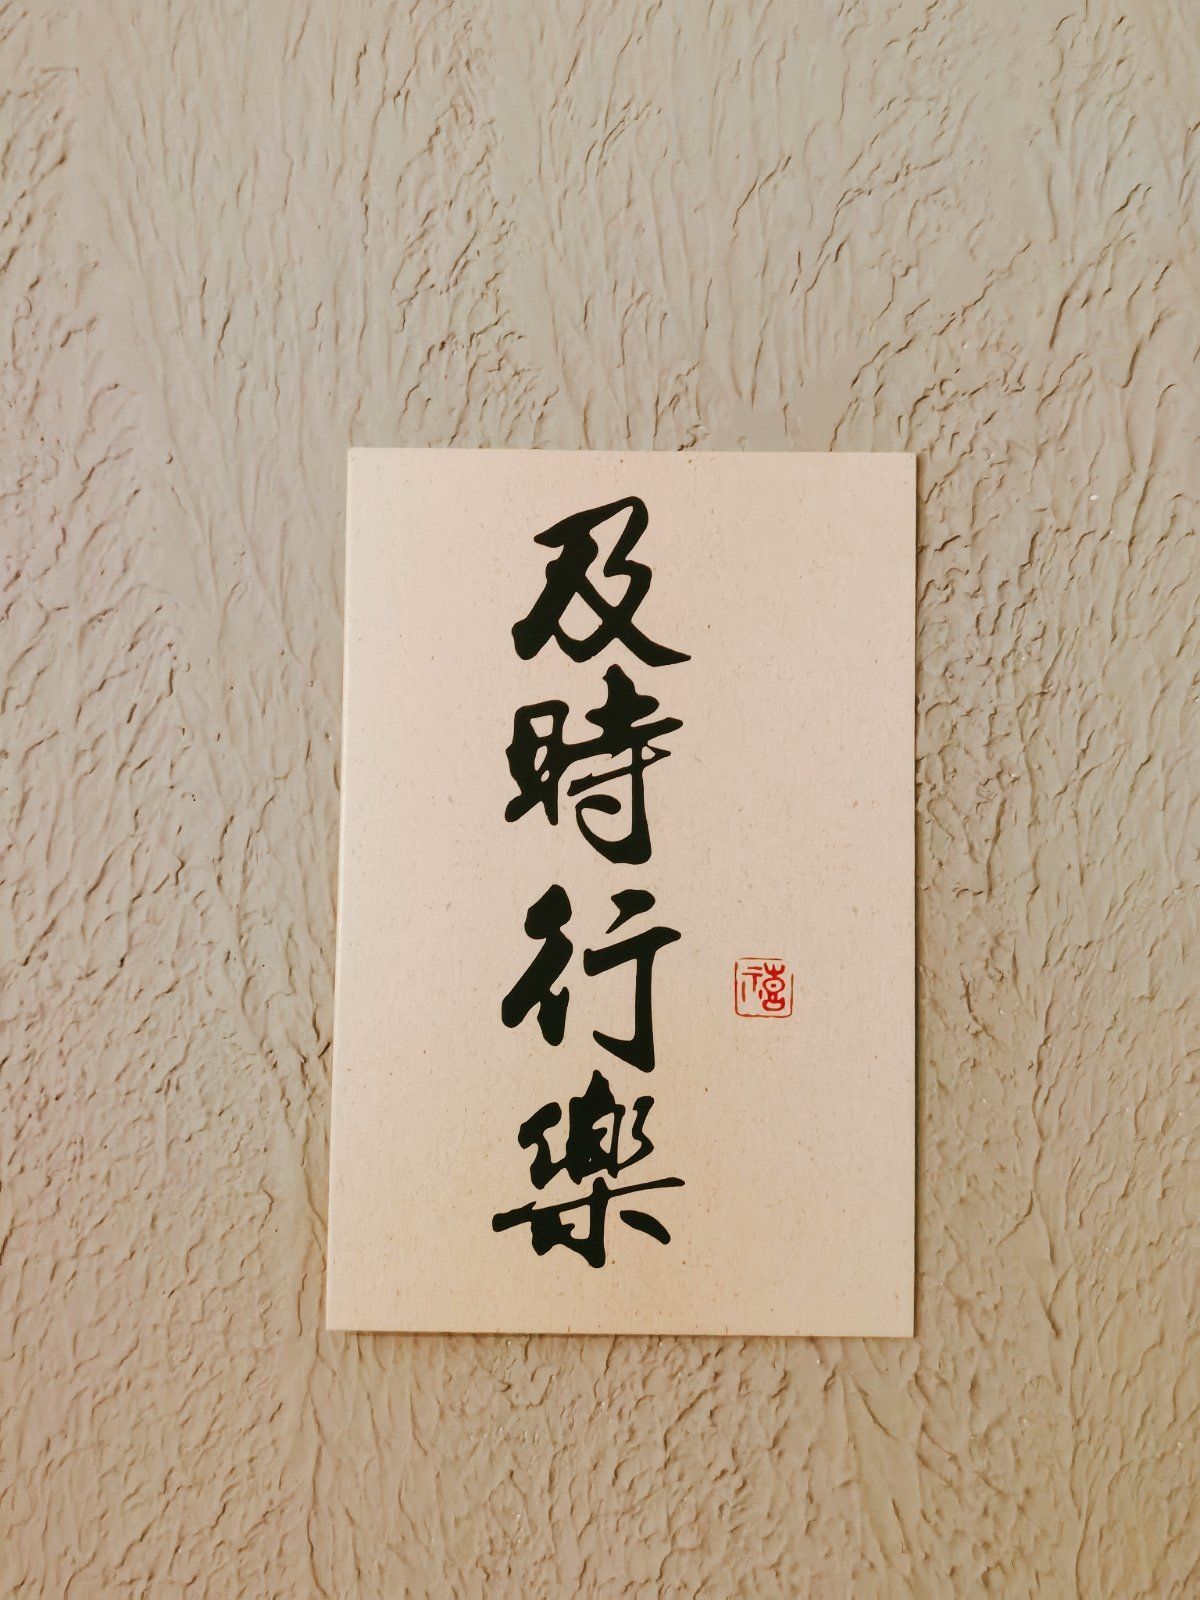 及時行樂
禧